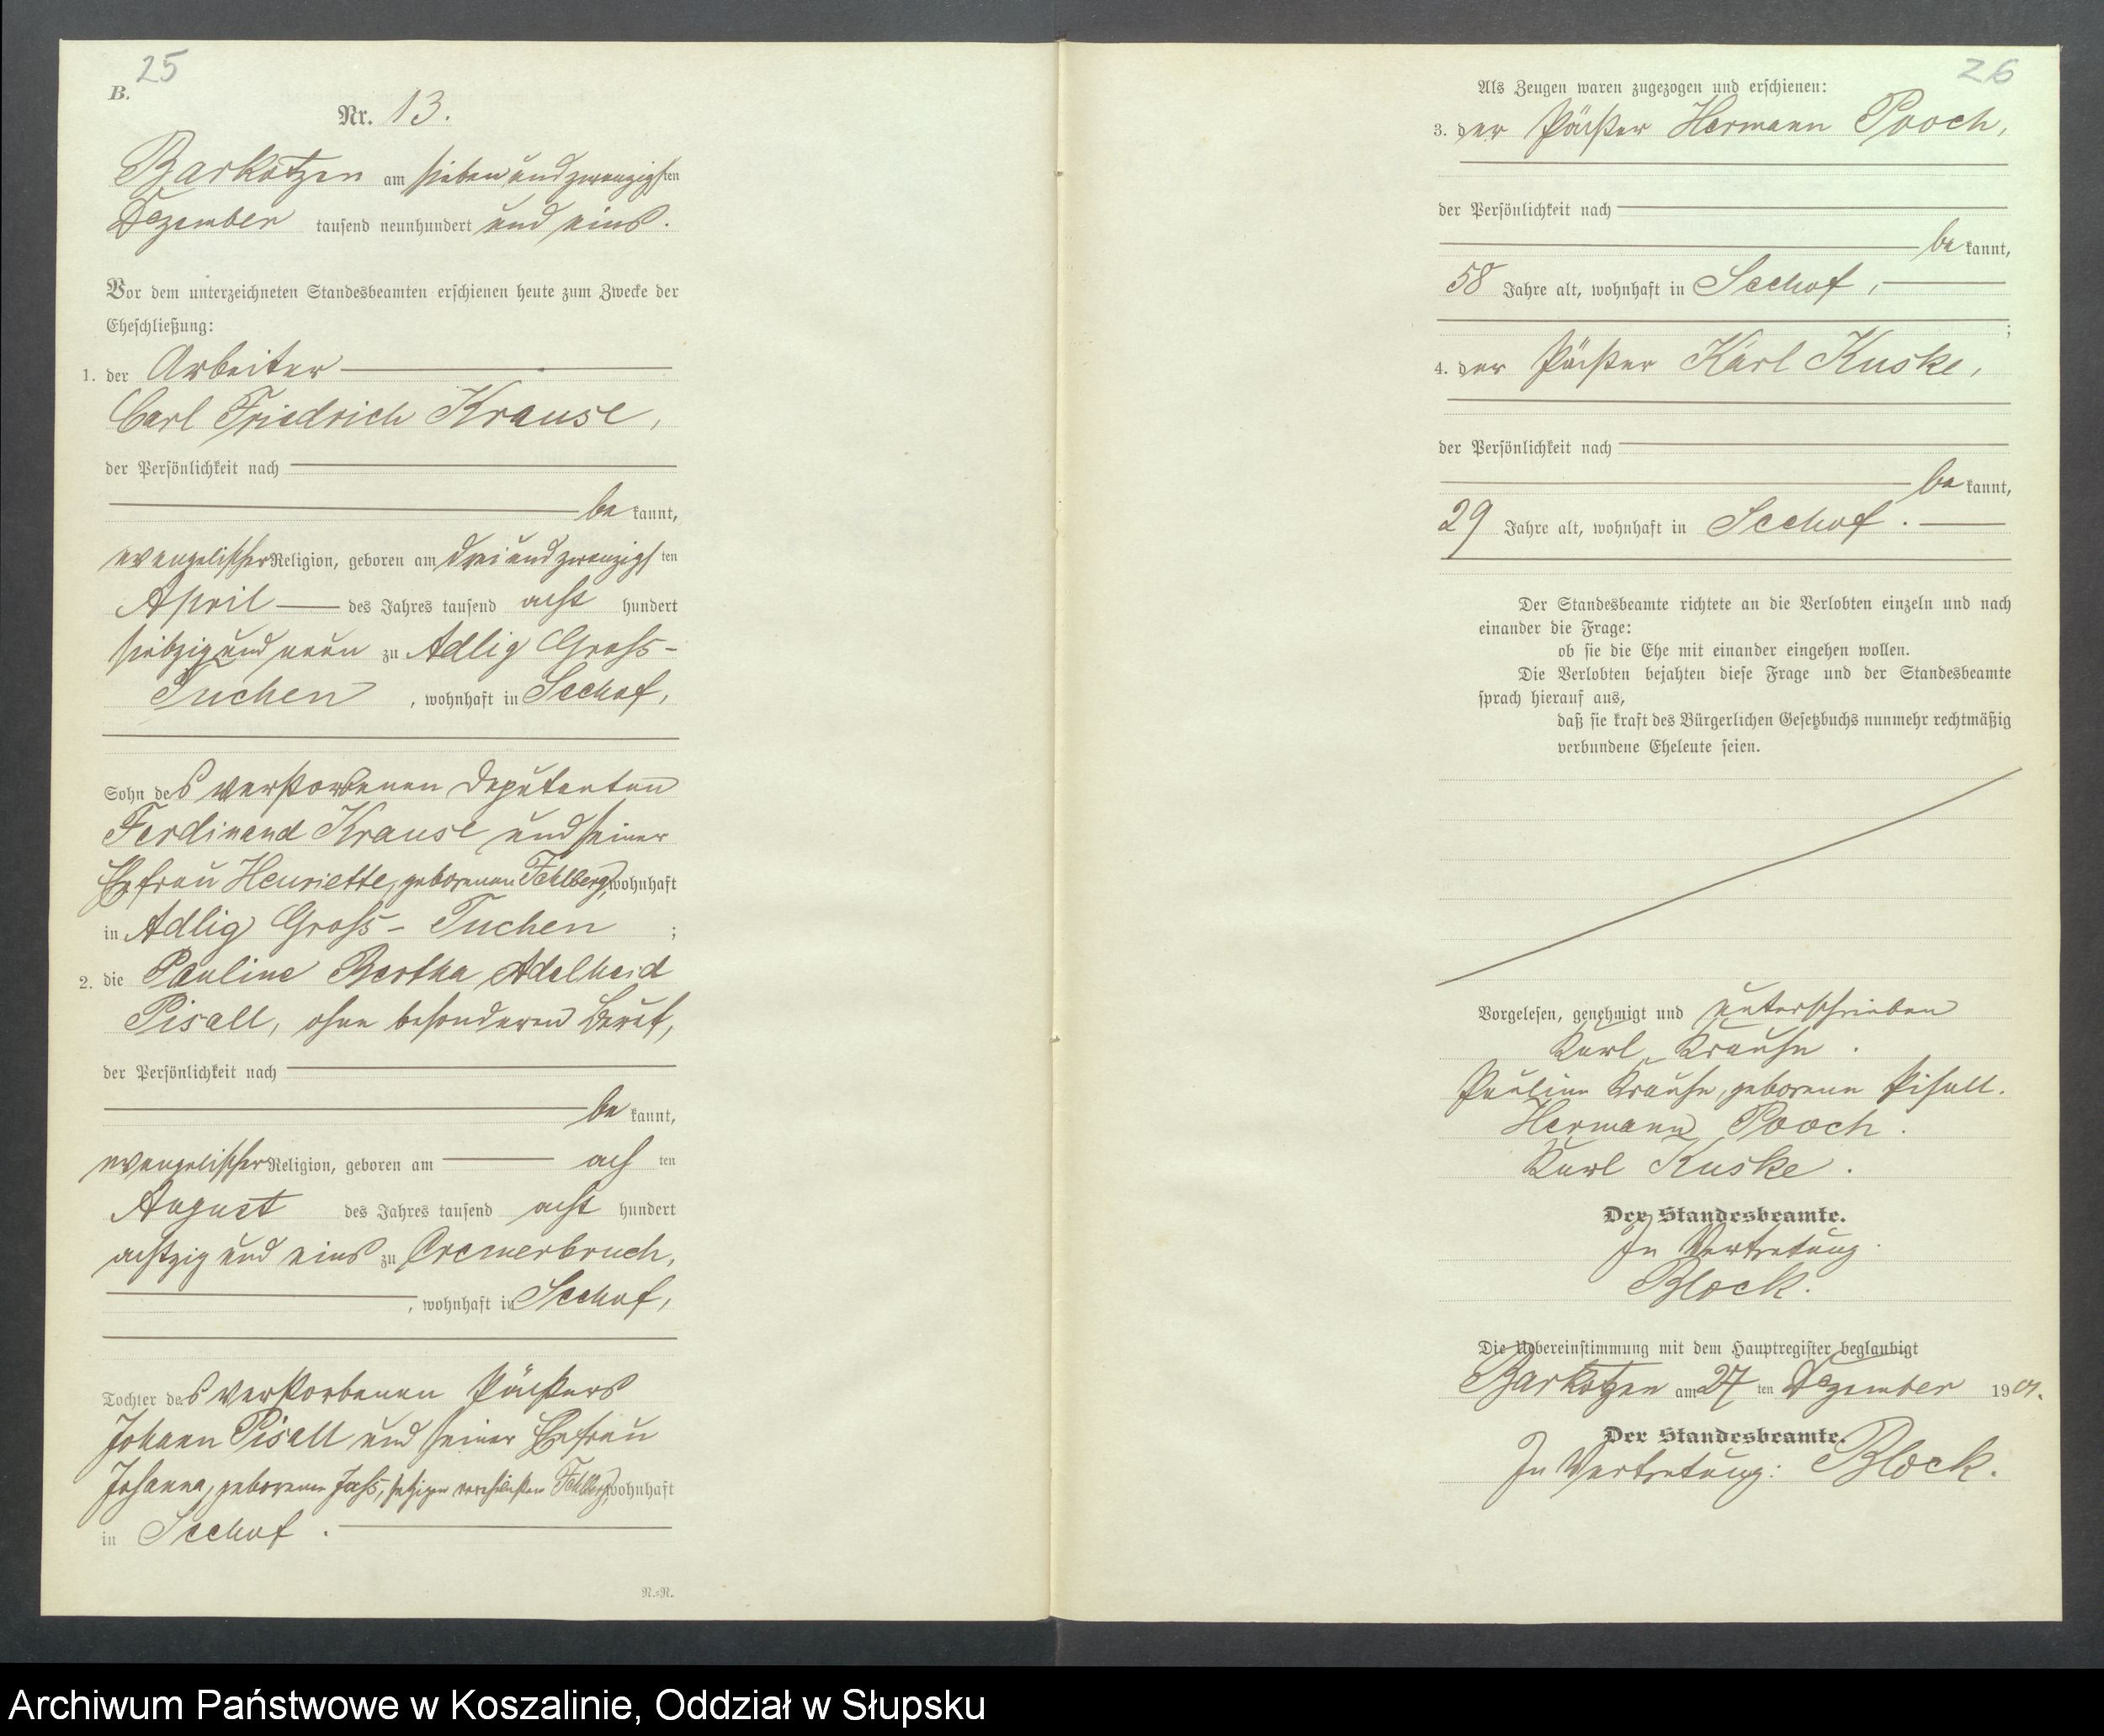 25
B.
Nr. 13.
Barkotzen am siebenundzwanzigsten
Dezember tausend neunhundert und eins.
Vor dem unterzeichneten Standesbeamten erschienen heute zum Zwecke der
Eheschließung:
1. der Arbeiter
Carl Friedrich Krause,
der Persönlichkeit nach
bekannt,
evangelischer Religion, geboren am dreiundzwanzigsten
April des Jahres tausend acht hundert
siebzig und neun zu Adlig Gross-
Tuchen, wohnhaft in Seehof,
Sohn des verstorbenen Deputanten
Ferdinand Krause und seiner
Ehefrau Henriette, geborenen Fehlberg, wohnhaft
in Adlig Gross-Tuchen;
2. die Pauline Bertha Adelheid
Pisall, ohne besonderen Beruf,
der Persönlichkeit nach
bekannt,
evangelischer Religion, geboren am achten
August des Jahres tausend acht hundert
achtzig und eins zu Cremerbruch,
, wohnhaft in Seehof,
Tochter des verstorbenen Pächters
Johann Pisall und seiner Ehefrau
Johanna, geborenen jetzigen verehelichten wohnhaft
in Seehof.
N.=N.
26
Als Zeugen waren zugezogen und erschienen:
3. der Pächter Hermann Pooch,
der Persönlichkeit nach
bekannt,
58 Jahre alt, wohnhaft in Seehof,
;
4. der Pächter Karl Kuske,
der Persönlichkeit nach
bekannt,
29 Jahre alt, wohnhaft in Seehof.
Der Standesbeamte richtete an die Verlobten einzeln und nach
einander die Frage:
ob sie die Ehe mit einander eingehen wollen.
Die Verlobten bejahten diese Frage und der Standesbeamte
sprach hierauf aus,
daß sie kraft des Bürgerlichen Gesetzbuchs nunmehr rechtmäßig
verbundene Eheleute seien.
Vorgelesen, genehmigt und unterschrieben
Karl Krause.
Pauline Krause, geborene Pisall.
Hermann Pooch.
Karl Kuske.
Der Standesbeamte.
In Vertretung.
Block.
Die Uebereinstimmung mit dem Hauptregister beglaubigt
Barkotzen am 27ten Dezember 1901.
Der Standesbeamte.
In Vertretung: Block.
Archiwum Państwowe w Koszalinie, Oddział w Słupsku